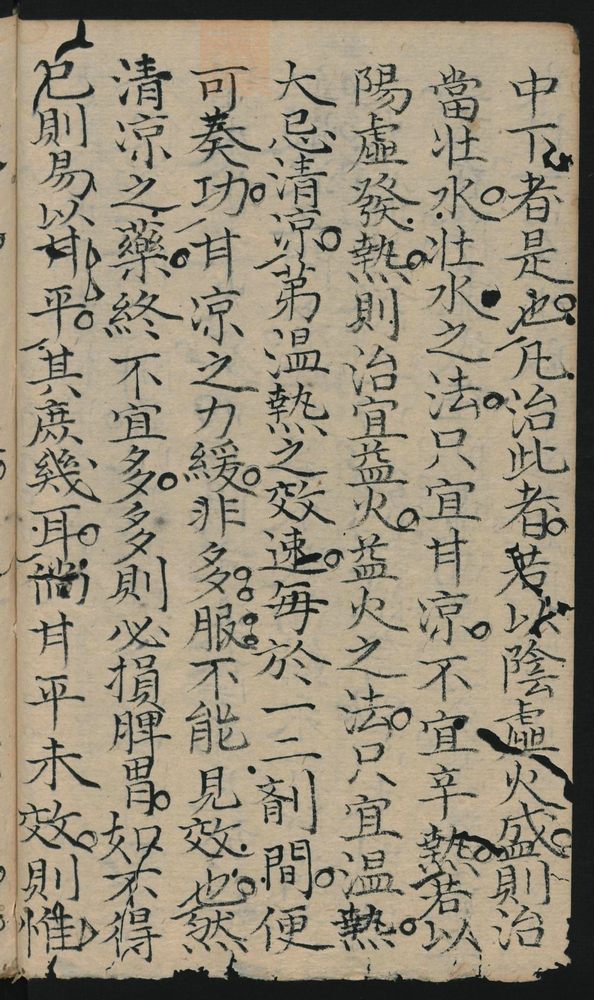 中下者是也凡治此者若以陰虛火盛則治
當壯水壯水之法只宜甘凉不宜辛熱若以
陽虛發熱則治宜益火益火之法只宜温熱
大忌清凉第温熱之效速每於一二劑間便
可奏功甘凉之力緩非多服不能見效也然
清凉之藥終不宜多多則必損脾胃如不得
已則易以甘平其庶幾耳倘甘平未效則惟